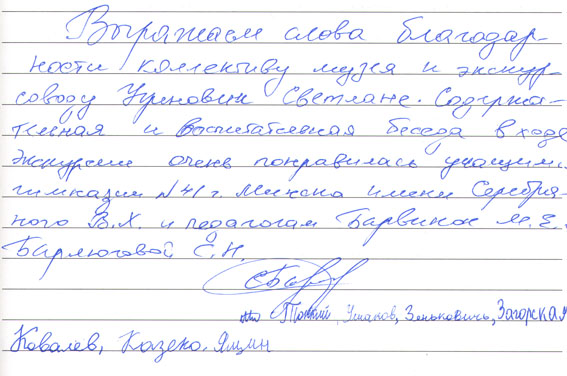 Выражаем слова благодар-
ности коллективу музея и экскур-
соводу Уренович Светлане. Содержа-
тельная и воспитательная беседа в ходе
экскурсии очень понравилась учащимся
гимназии №41 г. Минска имени Серебря-
ного В.Х. и педагогам Барвинок М.Е.,
Барлюговой Е.Н.
Ушаков, Зенькович, Загорская
Ковалев, Казеко, Яшин